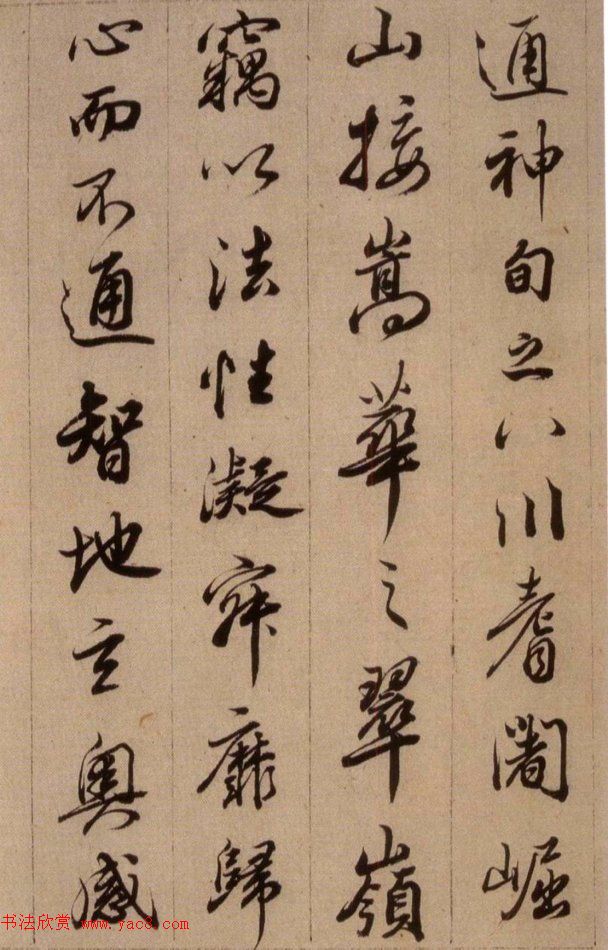 通神旬之八川耆闍崛
山接嵩華之翠嶺
竊以法性凝寂靡歸
心而不通智地玄奧感
书法欣赏 www.yac8.com